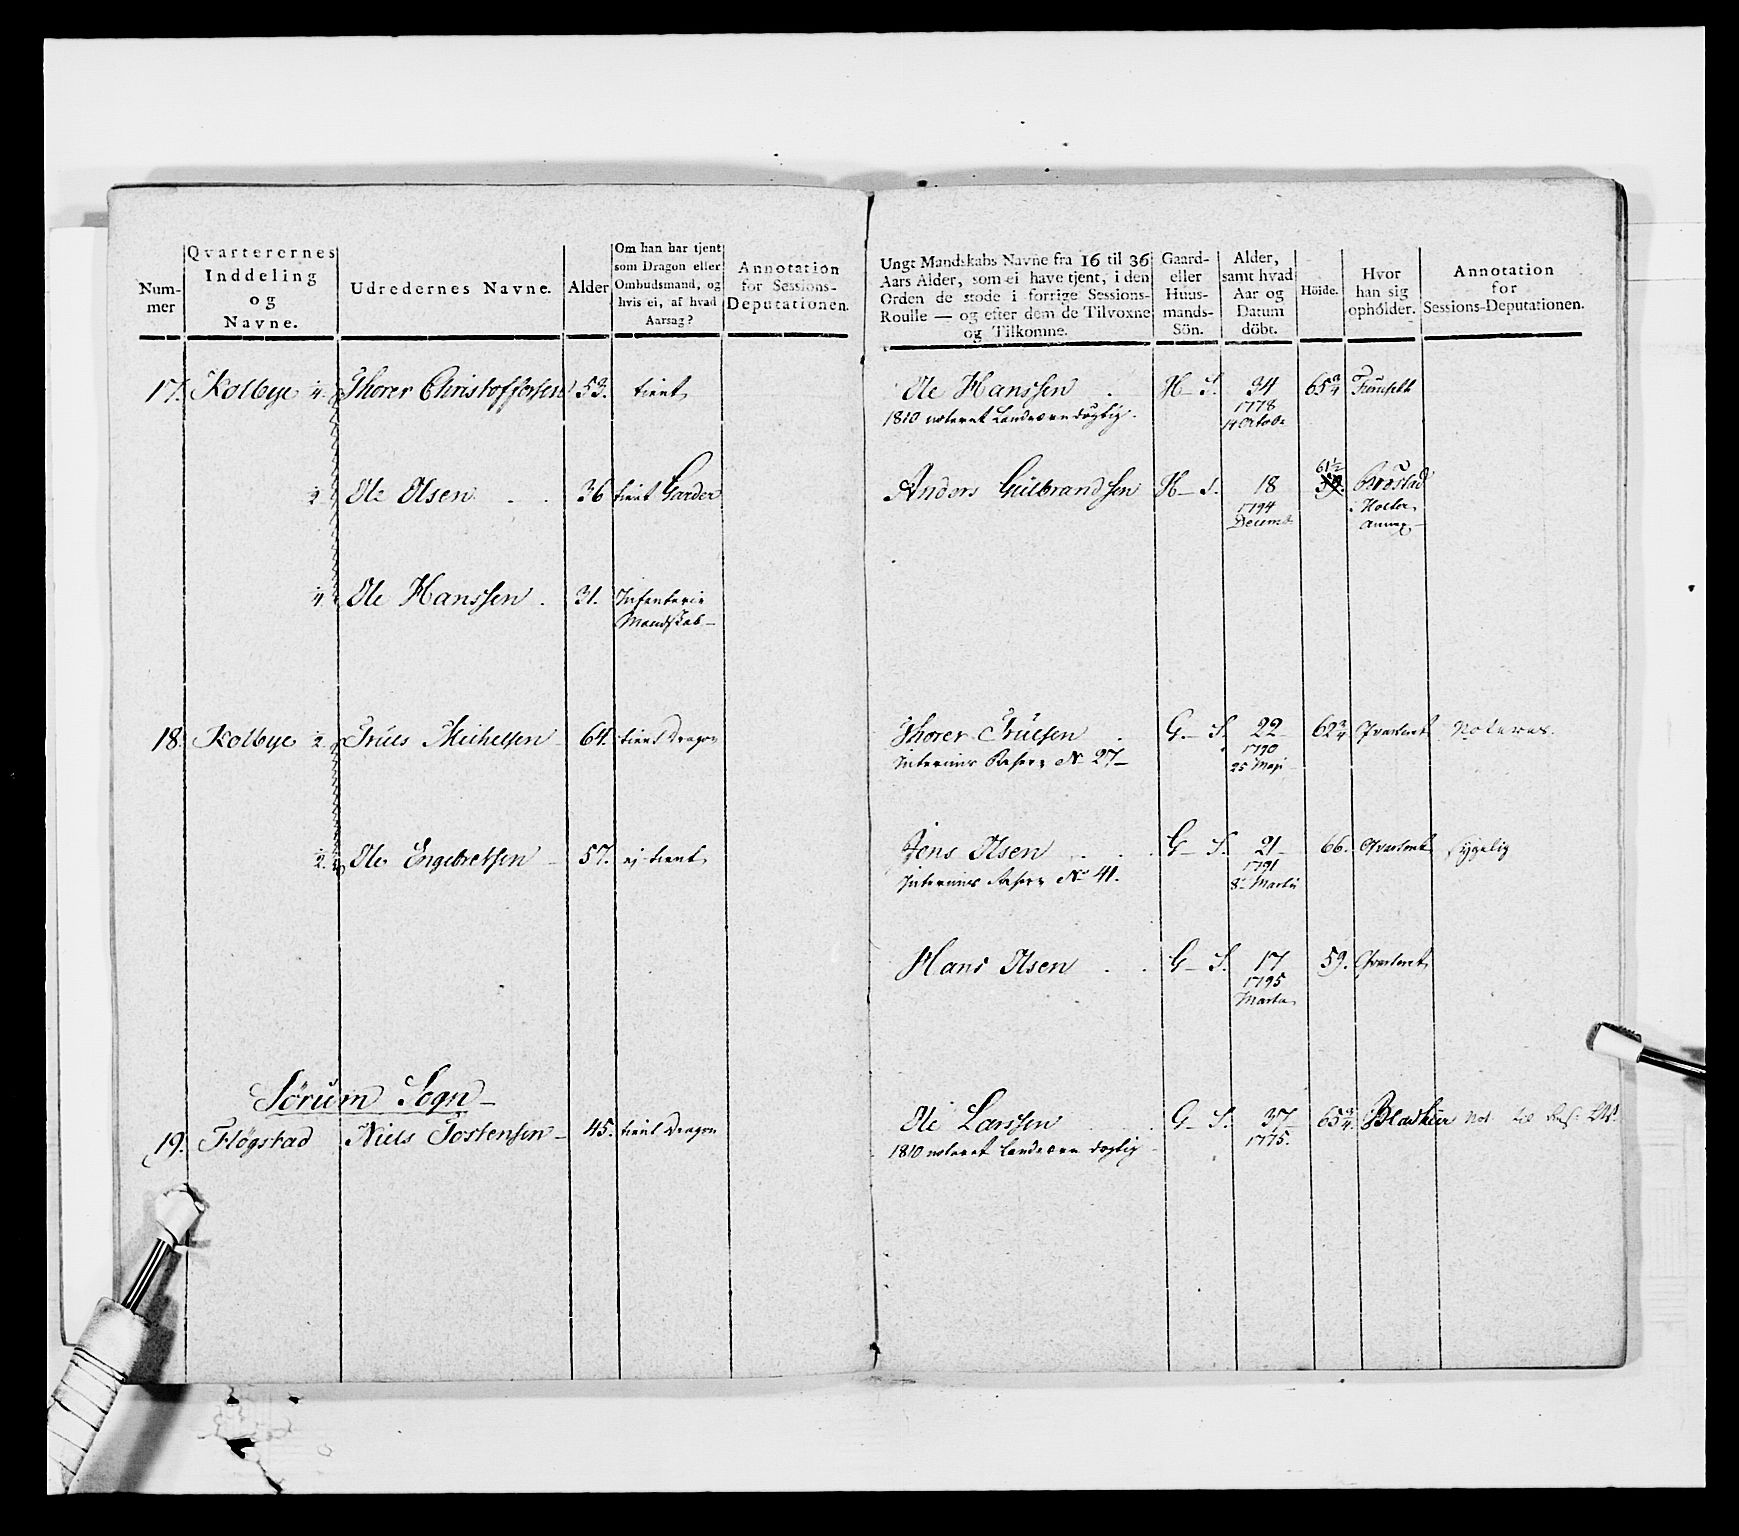 Num-
mer
Qvarterernes
Inddeling
og
Navne.
Udredernes Navne.
Alder
Om han har tjent
som Dragon eller
Ombudsmand, og
hvis ei, af hvad
Aarsag?
Annotation
for Sessions-
Deputationen.
17. Kolbye 1/4. Thorer Christoffersen 53. tient
1/2 Ole Olsen 36 tient Garder
1/4. Ole Hanssen. 31. Infanterie
Mandskab
18. Kolbye 1/2. Truls Michelsen 64. tient Dragon
1/2. Ole Engebretsen 57. ej tient
Sørum Sogn
19. Fløgstad Niels Tostensen 45. tient Dragon
Ungt Mandskabs Navne fra 16 til 36
Aars Alder, som ei have tjent, i den
Orden de stode i forrige Sessions-
Roulle — og efter dem de Tilvoxne
og Tilkomne.
Gaard-
eller
Huus-
mands-
Sön.
Alder,
samt hvad
Aar og
Datum
döbt.
Höide.
Hvor
han sig
opholder.
Annotation
for
Sessions-Deputationen.
Ole Hanssen H-S. 34 65 3/4
1810 noteret Landeværndygtig. 1778
14 Octob
Anders Gulbrandsen H-S. 18 61 1/2
1794 Holter
Decemb Annex
Thorer Trulsen G-S. 22 62 3/4 Qvarteret Noteres.
Interims Reserv No 27 1790
25 Maji
Jens Olsen G-S. 21 66. Qvarteret sygelig
Interims Reserv No 41. 1791
8 Martii
Hans Olsen G-S. 17 59. Qvarteret
1795
Martii
Ole Larssen G-S. 37 65 3/4 Not.
1810 noteret Landeværn dygtig 1775.